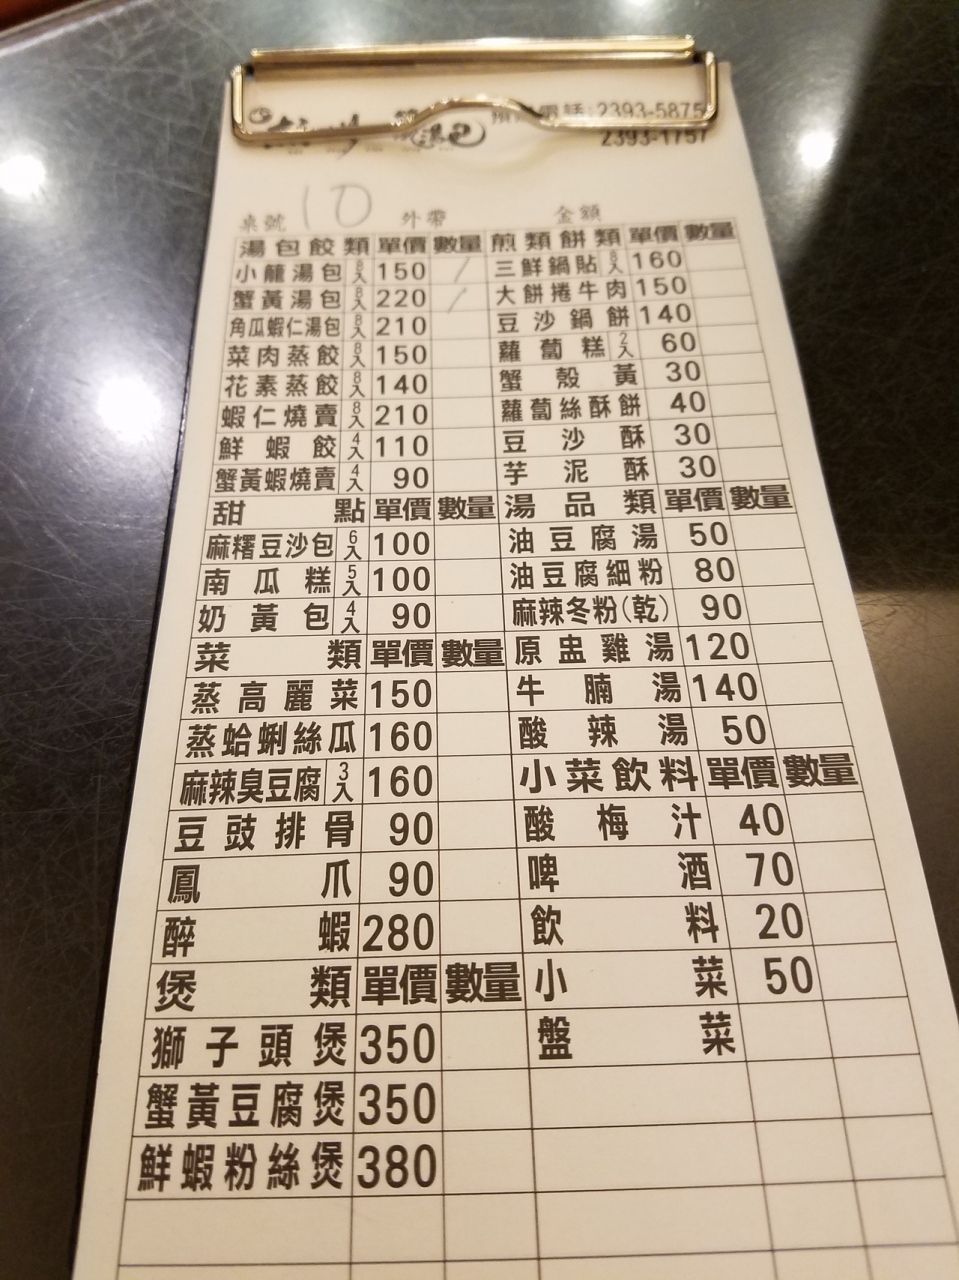 電話:2393-5875
2393-1757
桌號 10 外帶 金額
湯包餃類 單價 數量 煎類餅類 單價 數量
小籠湯包 8入 150 / 三鮮鍋貼 8入 160
蟹黃湯包 8入 220 / 大餅捲牛肉 150
角瓜蝦仁湯包 8入 210 豆沙鍋餅 140
菜肉蒸餃 8入 150 蘿蔔糕 2入 60
花素蒸餃 8入 140 蟹殼黃 30
蝦仁燒賣 8入 210 蘿蔔絲酥餅 40
鮮蝦餃 4入 110 豆沙酥 30
蟹黃蝦燒賣 4入 90 芋泥酥 30
甜點 單價 數量 湯品類 單價 數量
麻糬豆沙包 6入 100 油豆腐湯 50
南瓜糕 5入 100 油豆腐細粉 80
奶黃包 4入 90 麻辣冬粉(乾) 90
菜類 單價 數量 原盅雞湯 120
蒸高麗菜 150 牛腩湯 140
蒸蛤蜊絲瓜 160 酸辣湯 50
麻辣臭豆腐 3入 160 小菜飲料 單價 數量
豆豉排骨 90 酸梅汁 40
鳳爪 90 啤酒 70
醉蝦 280 飲料 20
煲類 單價 數量 小菜 50
獅子頭煲 350 盤菜
蟹黃豆腐煲 350
鮮蝦粉絲煲 380